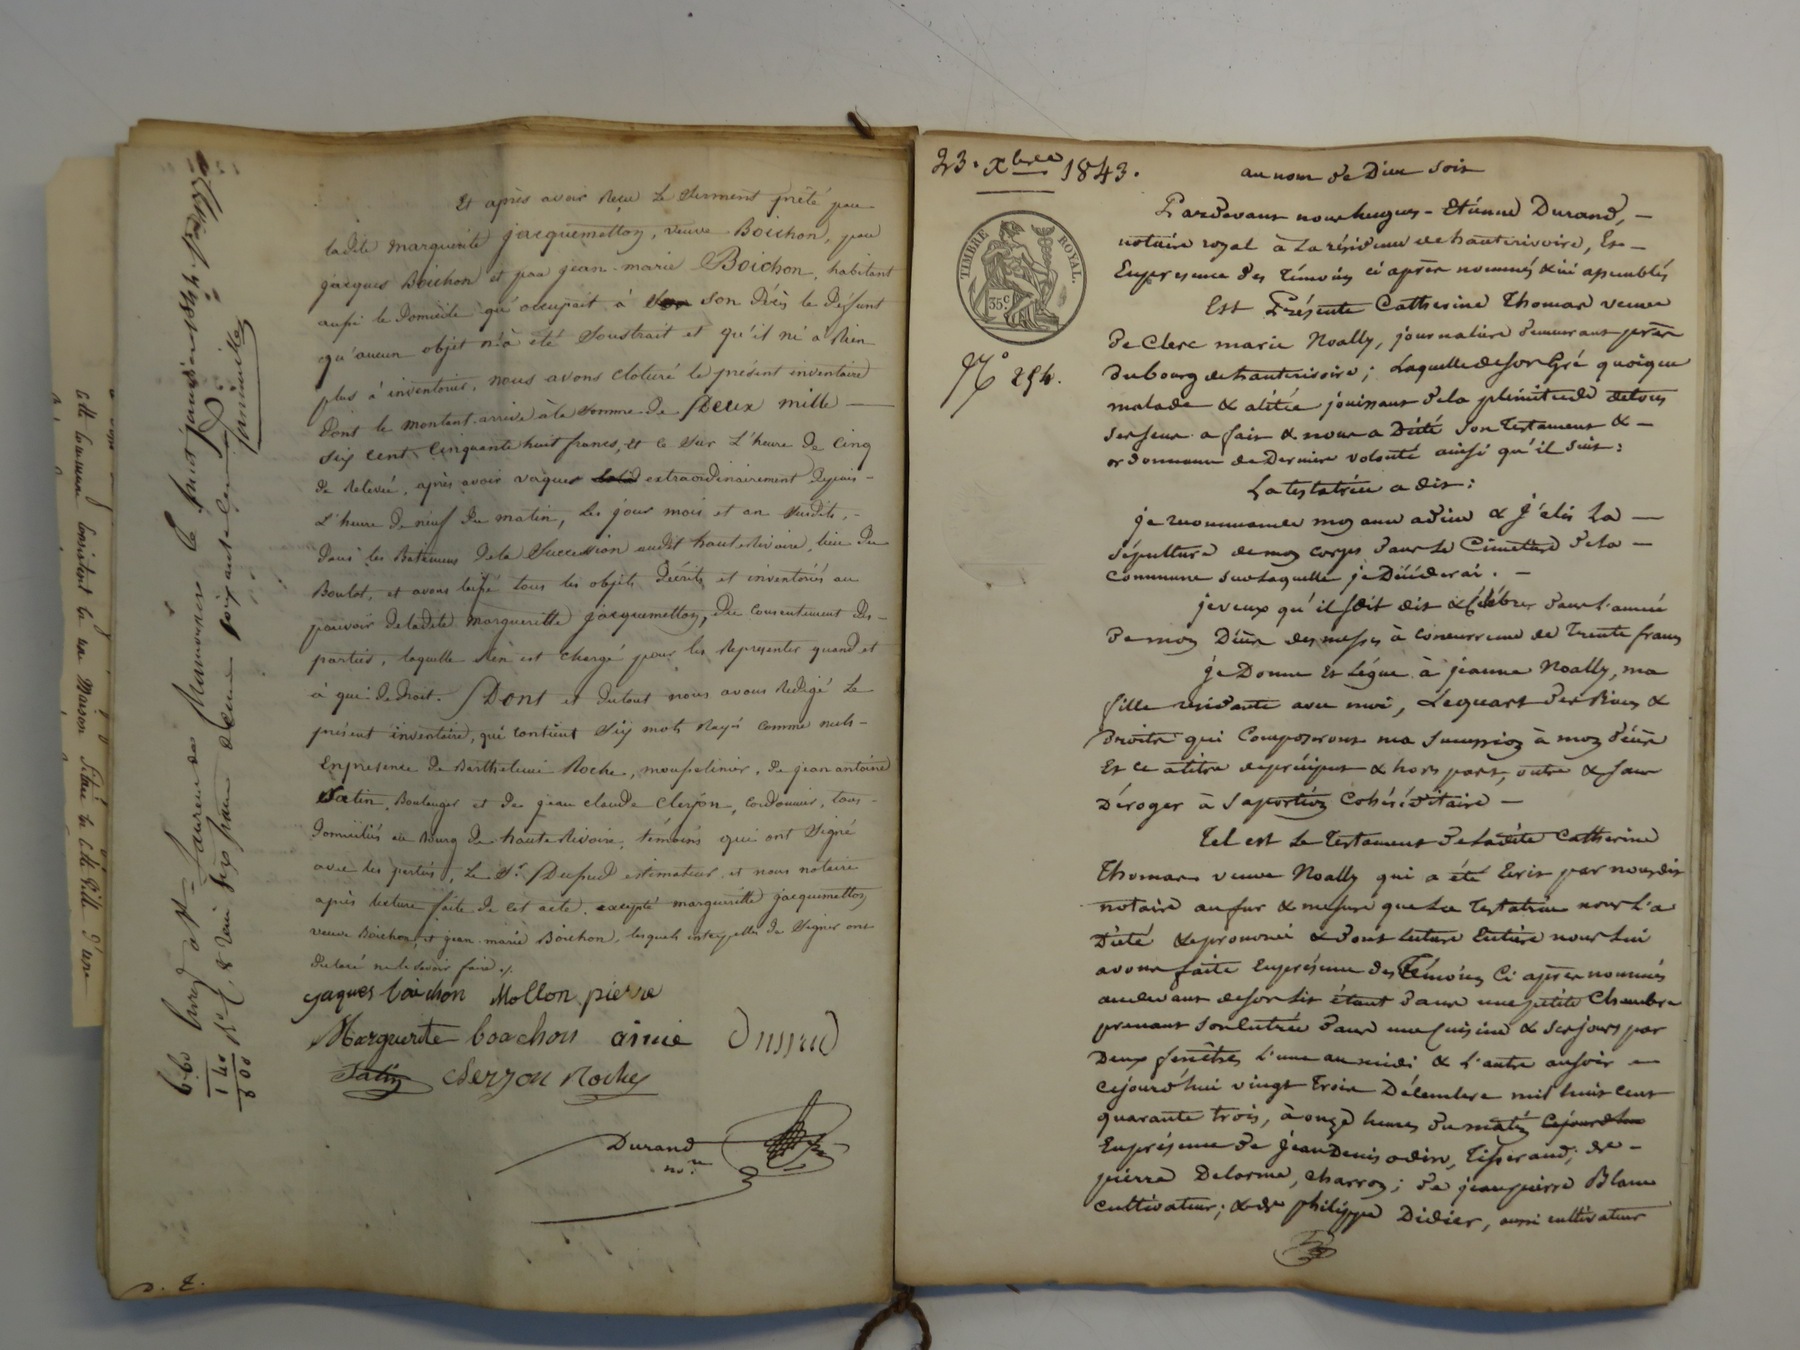 Et après avoir reçu le serment prêté par
ladite marguerite jacquemetton, veuve Boichon, par
jacques Boichon et par jean-marie Boichon, habitant
aussi le domicile qu'occupait à son décès le défunt
qu'aucun objet n'a été soustrait et qu'il ne a rien
plus à inventorier, nous avons cloturé le présent inventaire
dont le montant arrive à la somme de Deux mille
six cent cinquante huit francs, et ce sur l'heure de cinq
de relevée, après avoir vaqué extraordinairement depuis-
l'heure de neuf du matin, les jour mois et an susdits,-
dans les Batimens de la succession audit hauterivoire, lieu du
Boulot, et avons laissé tous les objets décrits et inventoriés au
pouvoir de ladite marguerite jacquemetton, du consentement des-
parties, laquelle s'en est chargé pour les représenter quand et
à qui de droit. Dont et du tout nous avons rédigé le
présent inventaire, qui contient six mots rayés comme nuls-
En présence de Barthelemi Roche, mousselinier, de jean antoine
Satin, Boulanger et de jean claude Clerjon, cordonnier, tous-
domiciliés au Bourg de hauterivoire, témoins qui ont signé
avec les parties, le Sr. Dupud estimateur, et nous notaire
après lecture faite de cet acte, excepté marguerite jacquemetton
veuve Boichon, et jean-marie Boichon, lesquels interpellés de signer ont
déclaré ne le savoir faire ./.
jaques boichon Mollon pierre
Marguerite boachon
Satin Clerjon Roche
Durand
nore
D. E.
6.60
1 40
8 00
23. Xbre 1843.
TIMBRE ROYAL
35c
No 254.
au nom de Dieu soit
Pardevant nous hugues-Etienne Durand, -
notaire royal à la résidence de hauterivoire, Et -
En presence des témoins ci après nommés & ici assemblés
Est Présente Catherine Thomas veuve
de Clerc marie Noally, journalière demeurant près
du bourg de hauterivoire; Laquelle de son Gré quoique
malade & alitée jouissant de la plénitude de tous
ses sens a fait & nous a Dicté son Testament & -
ordonnance de Dernière volonté ainsi qu'il suit:
La testatrice a dit:
je recommande mon ame a dieu & j'élis La -
sépulture de mon corps dans Le Cimetière de La -
commune sur Laquelle je Décéderai. -
je veux qu'il soit dit & Célébrer dans l'année
de mon Décès des messes à concurrence de Trente francs
je Donne Et Légue à jeanne Noally, ma
fille résidante avec moi, Le quart des Biens &
Droits qui Composeront ma succession à mon décès
Et ce à titre de préciput & hors part, outre & sans
Déroger à sa portion Cohéréditaire -
Tel est Le Testament de Ladite Catherine
Thomas veuve Noally qui a été Ecrit par nous dit
notaire au fur & mesure que La Testatrice nous L'a
Dicté & prononcé & dont lecture Entière nous Lui
avons faite En présence des Témoins Ci après nommés
au devant de son Lit étant dans une petite Chambre
prenant son Entrée dans une Cuisine & ses jours par
Deux fenêtres L'une au midi & L'autre au soir -
Cejourd'hui vingt Trois Décembre mil huit Cent
quarante trois, à onze heures du matin Cejourdhui
En présence de jean Denis odin, Tisserand; de -
pierre Delorme, charron; de jean pierre Blanc
cultivateur; & de philippe Didier, aussi cultivateur